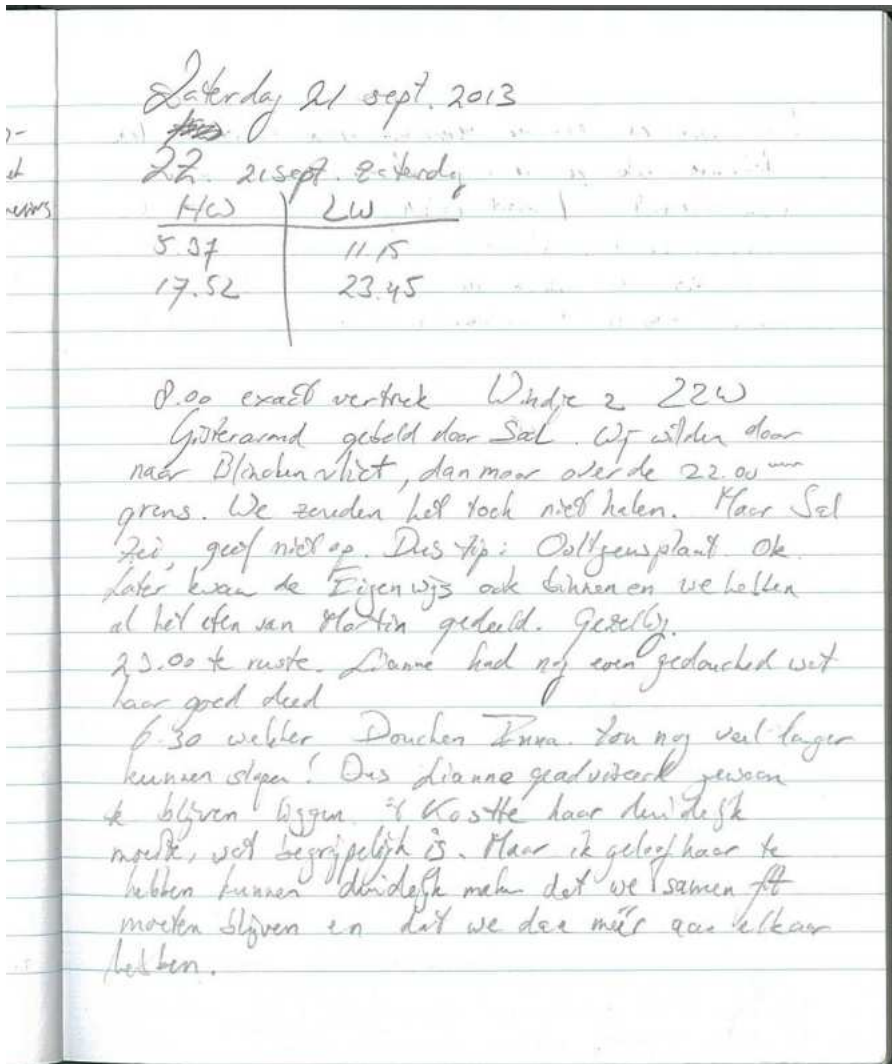 Zaterdag 21 sept. 2013
22. 21 sept. Zaterdag
HW LW
5.37 11.15
17.52 23.45
8.00 exact vertrek Windje 2 ZZW
Gisteravond gebeld door Sal. Wij wilden door
naar Blindenvliet, dan maar over de 22.00 uur
grens. We zouden het toch niet halen. Maar Sal
zei, geef niet op. Dus tip: Ooltgensplaat. Ok
Later kwam de Eigenwijs ook binnen en we hebben
al het eten van Martin gedeeld. Gezellig.
23.00 te ruste. Lianne had nog even gedouched wat
haar goed deed
6.30 wekker Douchen Inna. Zou nog veel langer
kunnen slapen! Dus Lianne geadviseerd gewoon
te blijven liggen. 't Kostte haar duidelijk
moeite, wat begrijpelijk is. Maar ik geloof haar te
hebben kunnen duidelijk maken dat we samen fit
moeten blijven en dat we dan méér aan elkaar
hebben.